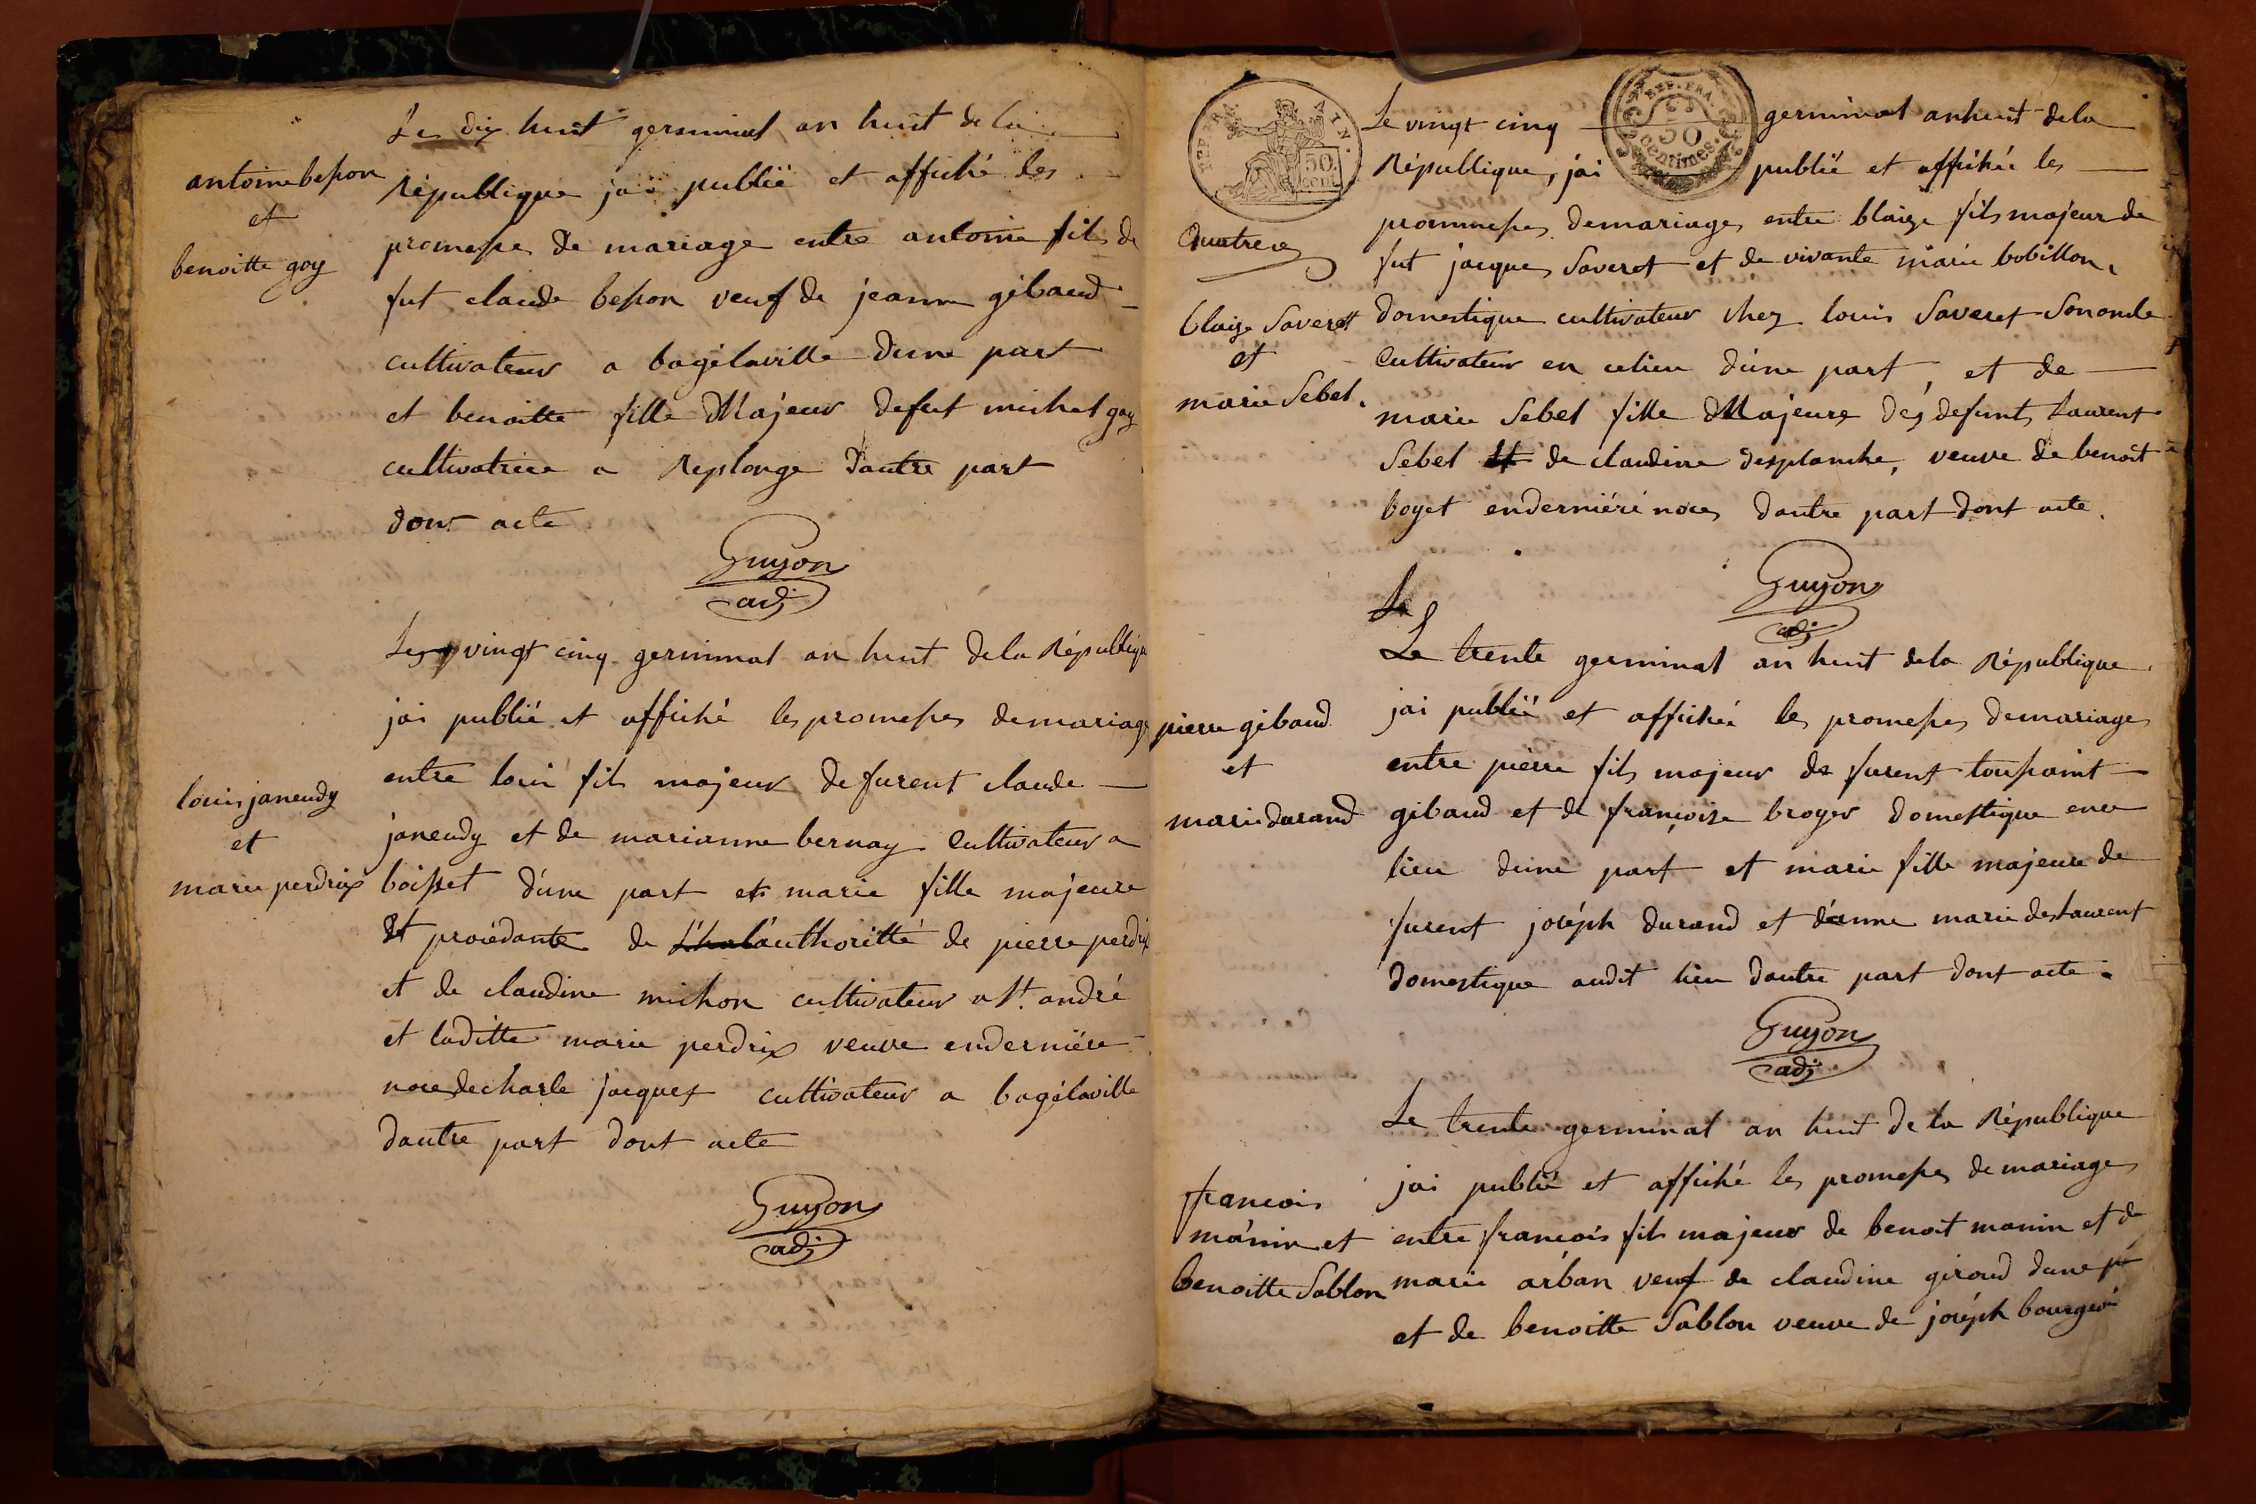 antoine besson
et
benoitte goy
Le dix huit germinal an huit de la
République jai publié et affiché les
promesses de mariage entre antoine fils de
fut claude besson veuf de jeanne gibaud
cultivateur a bagélaville dune part
et benoitte fille Majeur defut michel goy
cultivatrice a Replonge dautre part
dont acte
Guyon
adj
louis janeudy
et
marie perdrix
Le vingt cinq germinal an huit dela République
jai publié et affiché les promesses demariage
entre louis fils majeur defurent claude
janeudy et de marianne bernay Cultivateur a
boisset d'une part et marie fille majeure
Et procédante de l'authoritté de pierre perdrix
et de claudine michon cultivateur a St. andré
et laditte marie perdrix veuve endernière
noce decharle jacquet cultivateur a bagélaville
dautre part dont acte
Guyon
adj
REP. FRA. AIN.
50 cent
Quatre
blaize Saveret
et
marie Sebel.
REP. FRA.
50
centimes
Le vingt cinq germinal anhuit dela
République, jai publié et affiché les
prommesses demariages entre blaize fils majeur de
fut jacques Saveret et de vivante marie bobillon,
domestique cultivateur chez louis Saveret Sononcle
Cultivateur en celieu d'une part, et de
marie Sebel fille Majeure des defunts Laurent
Sebel Et de claudine desplanche, veuve de benoit
boyet enderniéré noces dautre part dont acte.
Guyon
adj
Le
pierre gibaud
et
marie durand
Le trente germinal an huit dela République
jai publié et affiché les promesses demariages
entre pierre fils majeur de furent toussaint
gibaud et de françoise broyer domestique ence
lieu dune part et marie fille majeure de
furent joséph durand et d'anne marie deslaurent
domestique audit lieu dautre part dont acte.
Guyon
adj
francois
manin et
benoitte Sablon
Le trente germinal an huit de la République
jai publié et affiché les promesses de mariages
entre francois fils majeur de benoit manin et de
marie arban veuf de claudine giroud dune pt
et de benoitte Sablon veuve de joséph bourgeois